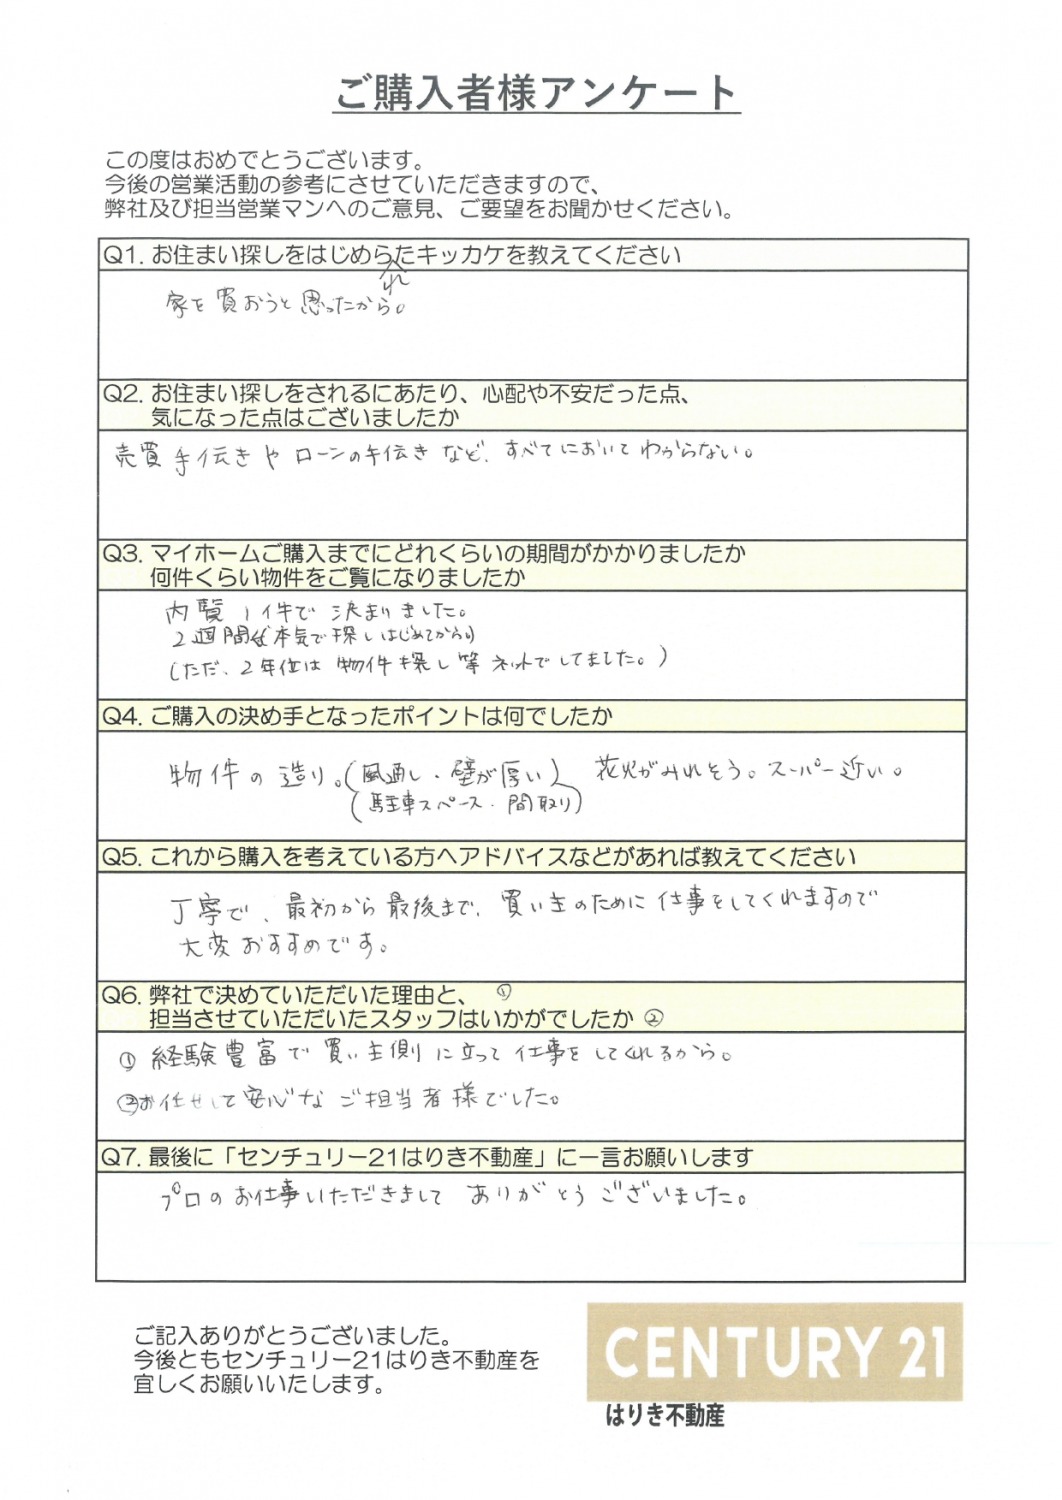 ご購入者様アンケート
この度はおめでとうございます。
今後の営業活動の参考にさせていただきますので、
弊社及び担当営業マンへのご意見、ご要望をお聞かせください。
Q1. お住まい探しをはじめらたキッカケを教えてください
れ
家を買おうと思ったから。
Q2. お住まい探しをされるにあたり、心配や不安だった点、
気になった点はございましたか
売買手伝きやローンの手伝きなど、すべてにおいてわからない。
Q3. マイホームご購入までにどれくらいの期間がかかりましたか
何件くらい物件をご覧になりましたか
内覧1件で決まりました。
2週間(本気で探しはじめてから)
(ただ、2年位は物件探し等ネットでしてました。)
Q4. ご購入の決め手となったポイントは何でしたか
物件の造り。(風通し・壁が厚い) 花火がみれそう。スーパー近い。
(駐車スペース・間取り)
Q5. これから購入を考えている方へアドバイスなどがあれば教えてください
丁寧で、最初から最後まで、買い主のために仕事をしてくれますので
大変おすすめです。
Q6. 弊社で決めていただいた理由と、 ①
担当させていただいたスタッフはいかがでしたか ②
① 経験豊富で買い主側に立って仕事をしてくれるから。
②お任せして安心なご担当者様でした。
Q7. 最後に「センチュリー21はりき不動産」に一言お願いします
プロのお仕事いただきまして ありがとうございました。
ご記入ありがとうございました。
今後ともセンチュリー21はりき不動産を
宜しくお願いいたします。
CENTURY 21
はりき不動産